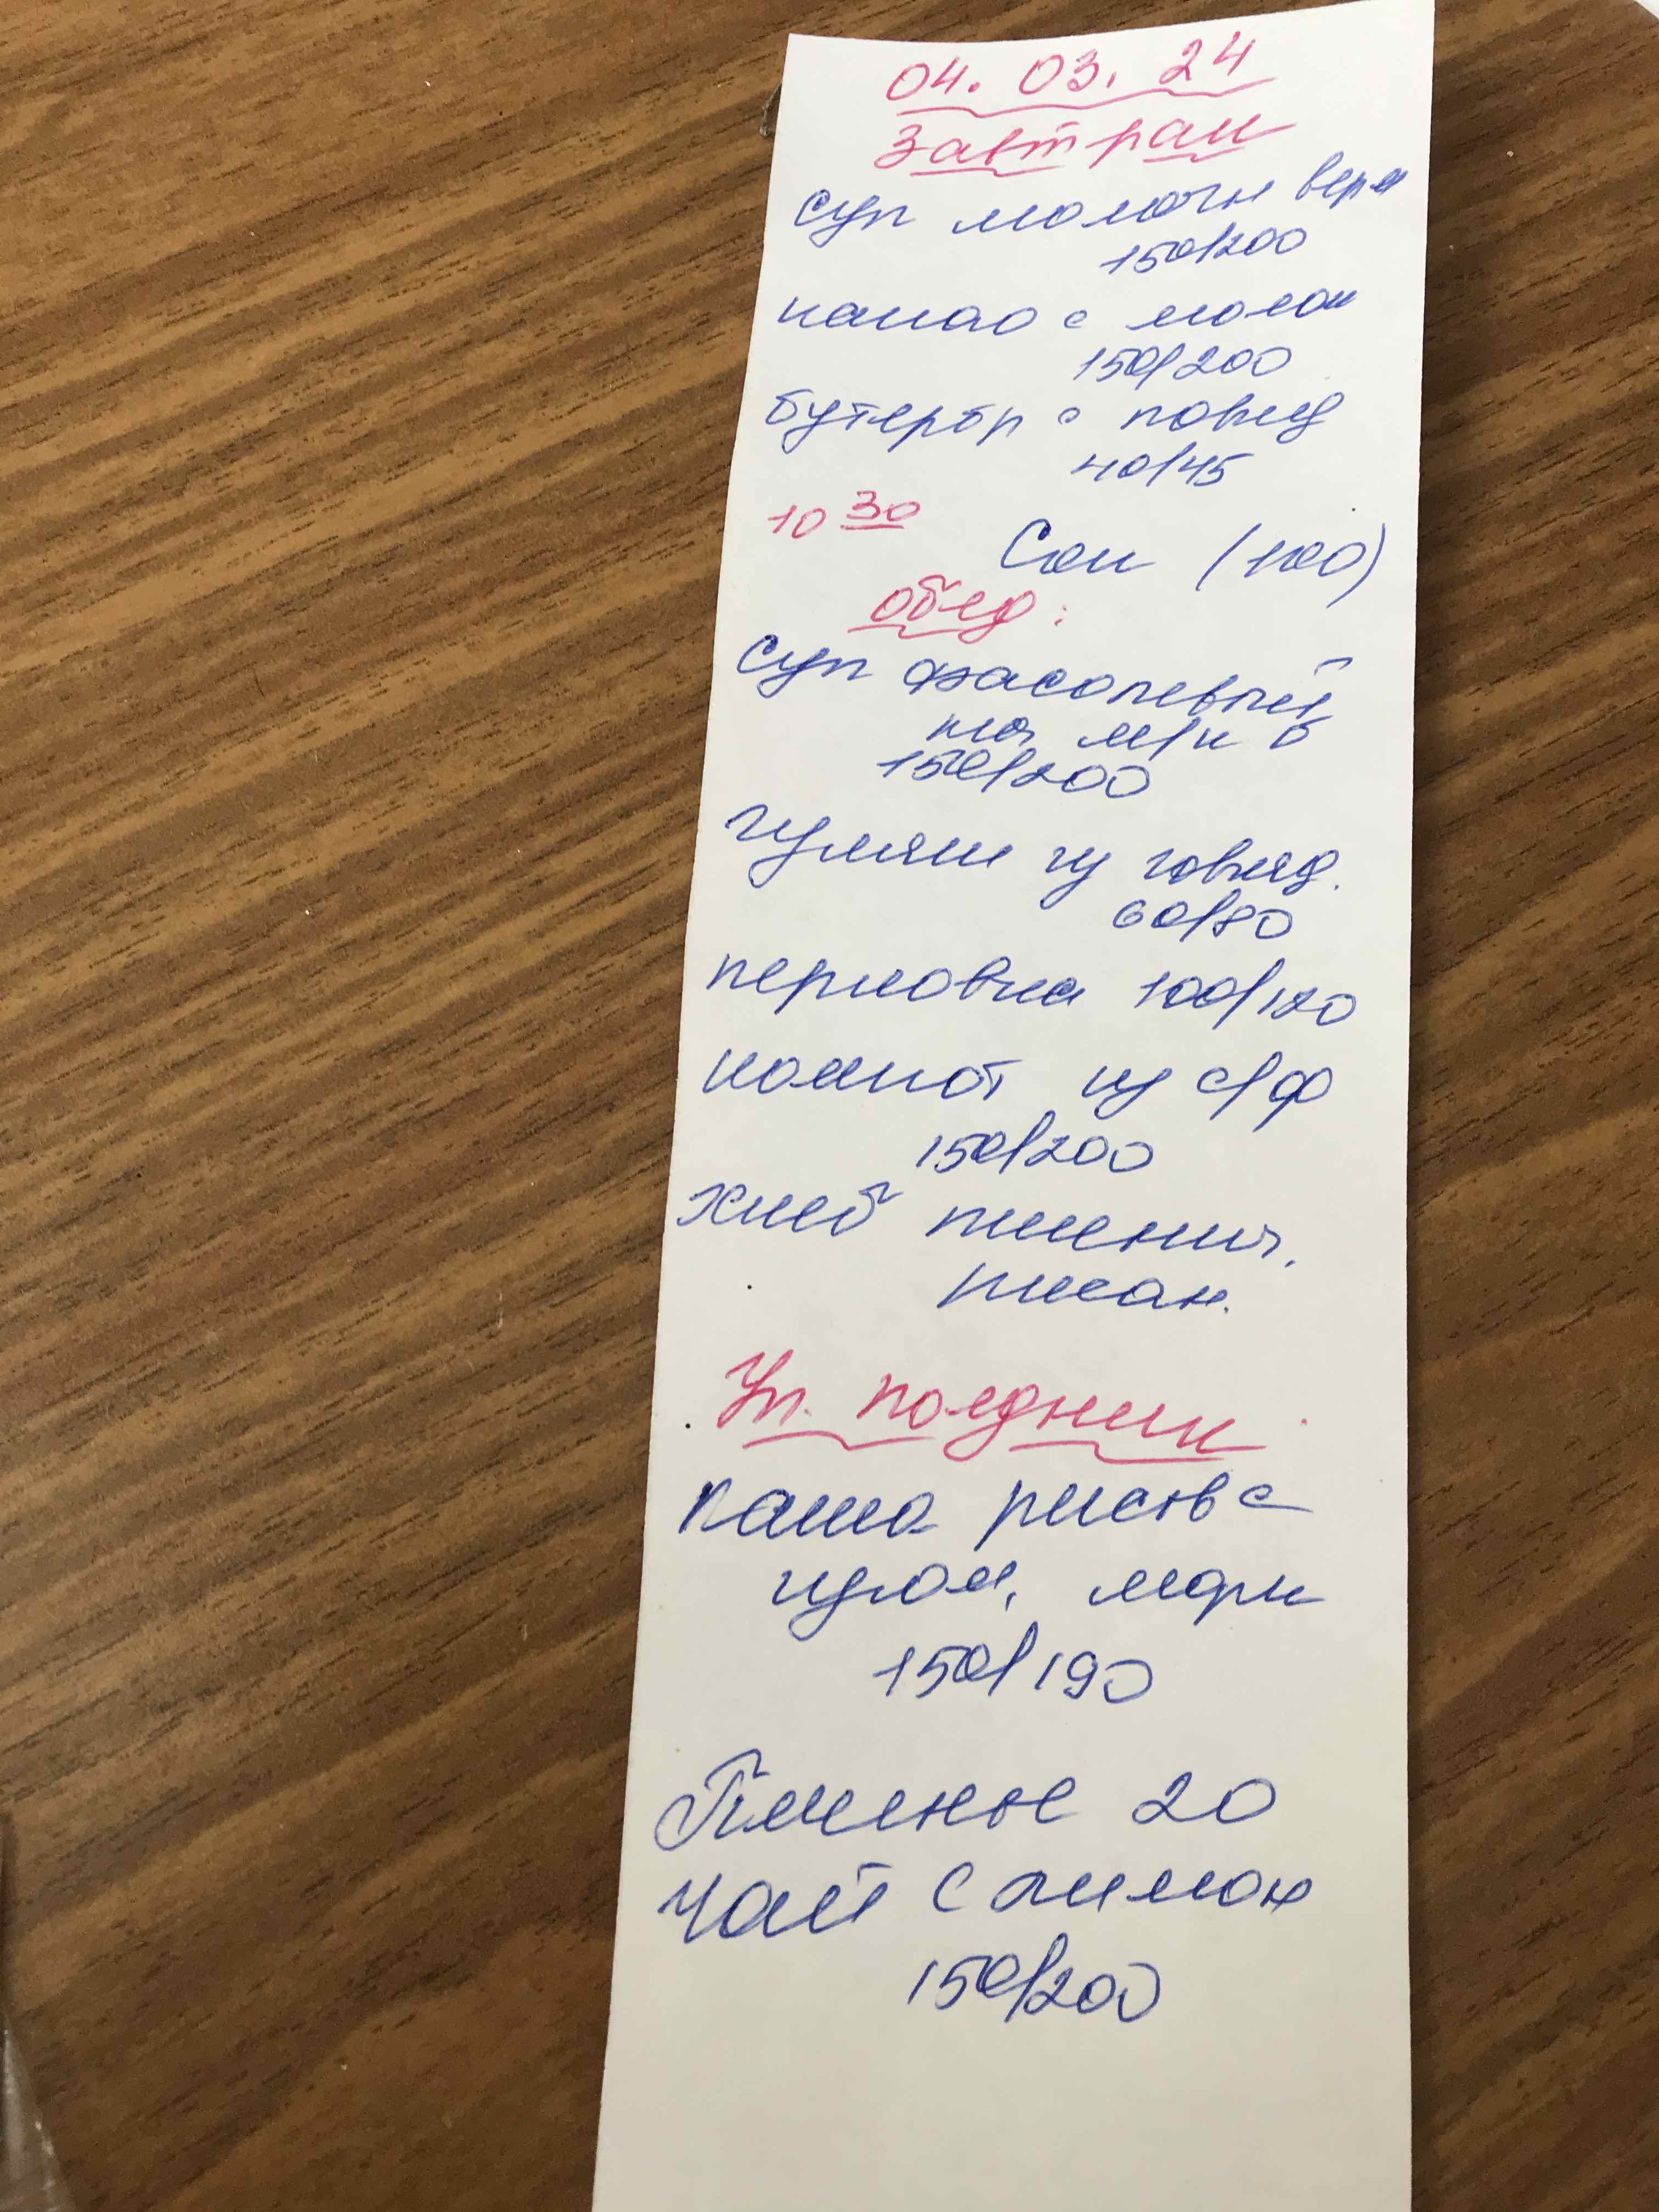 04. 03. 24
Завтрак
суп молочн верм
150/200
какао с молок
150/200
бутербр с повид
40/45
10 30
Сок (100)
обед:
суп фасолевый
на м/к б
150/200
гуляш из говяд.
60/80
перловка 100/120
компот из с/ф
150/200
хлеб пшенич.
ржан.
Уп. полдник
каша рисов с
изюм, морк
150/190
Печенье 20
чай с лимон
150/200